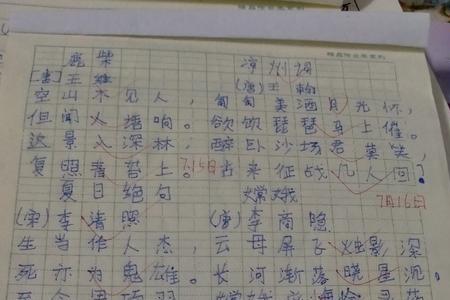 鹿柴
[唐]王维
空山不见人，
但闻人响。
景入深林，
复照青苔上。
7月15日
夏日绝句
(宋)李清照
生当作人杰，
死亦为鬼雄。
凉州词
(唐)王翰
美酒月光
欲饮琵琶马上催。
醉卧沙场君莫笑，
古来征战几人回？
7月16日
嫦娥
(唐)李商隐
云母屏烛影深
长河渐落晓星沉。